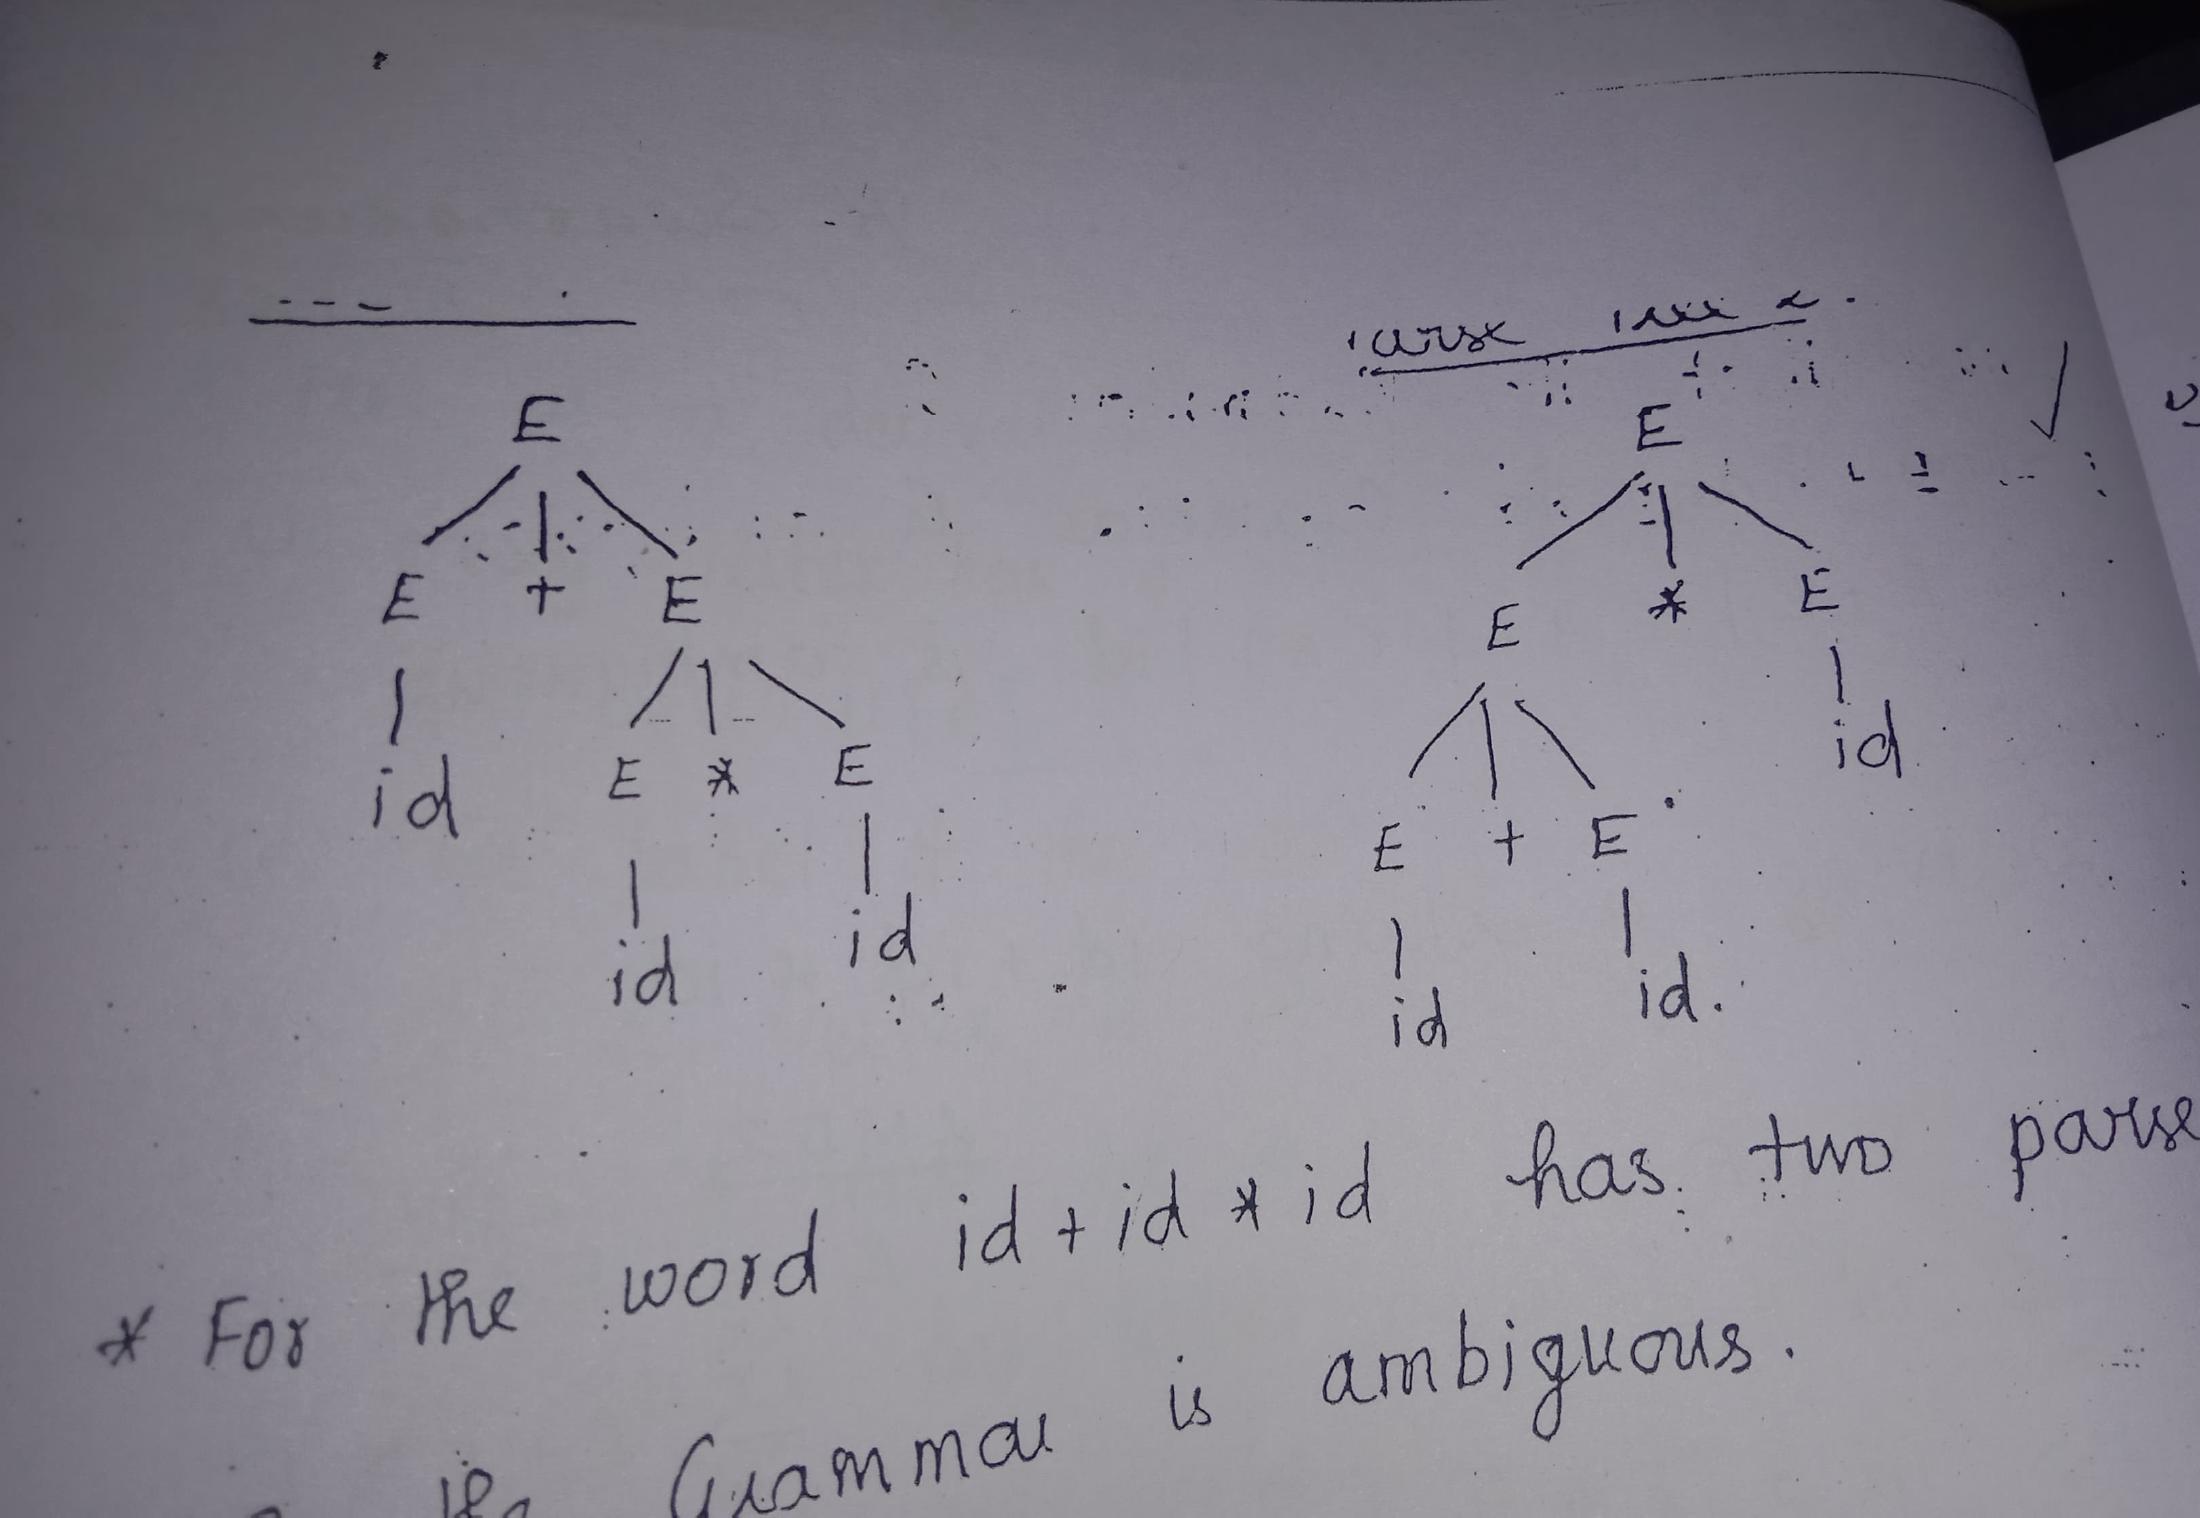 E E
E + E E * E
id E * E E + E id
id id id id.
* For the word id + id * id has two parse
the Grammar is ambiguous.